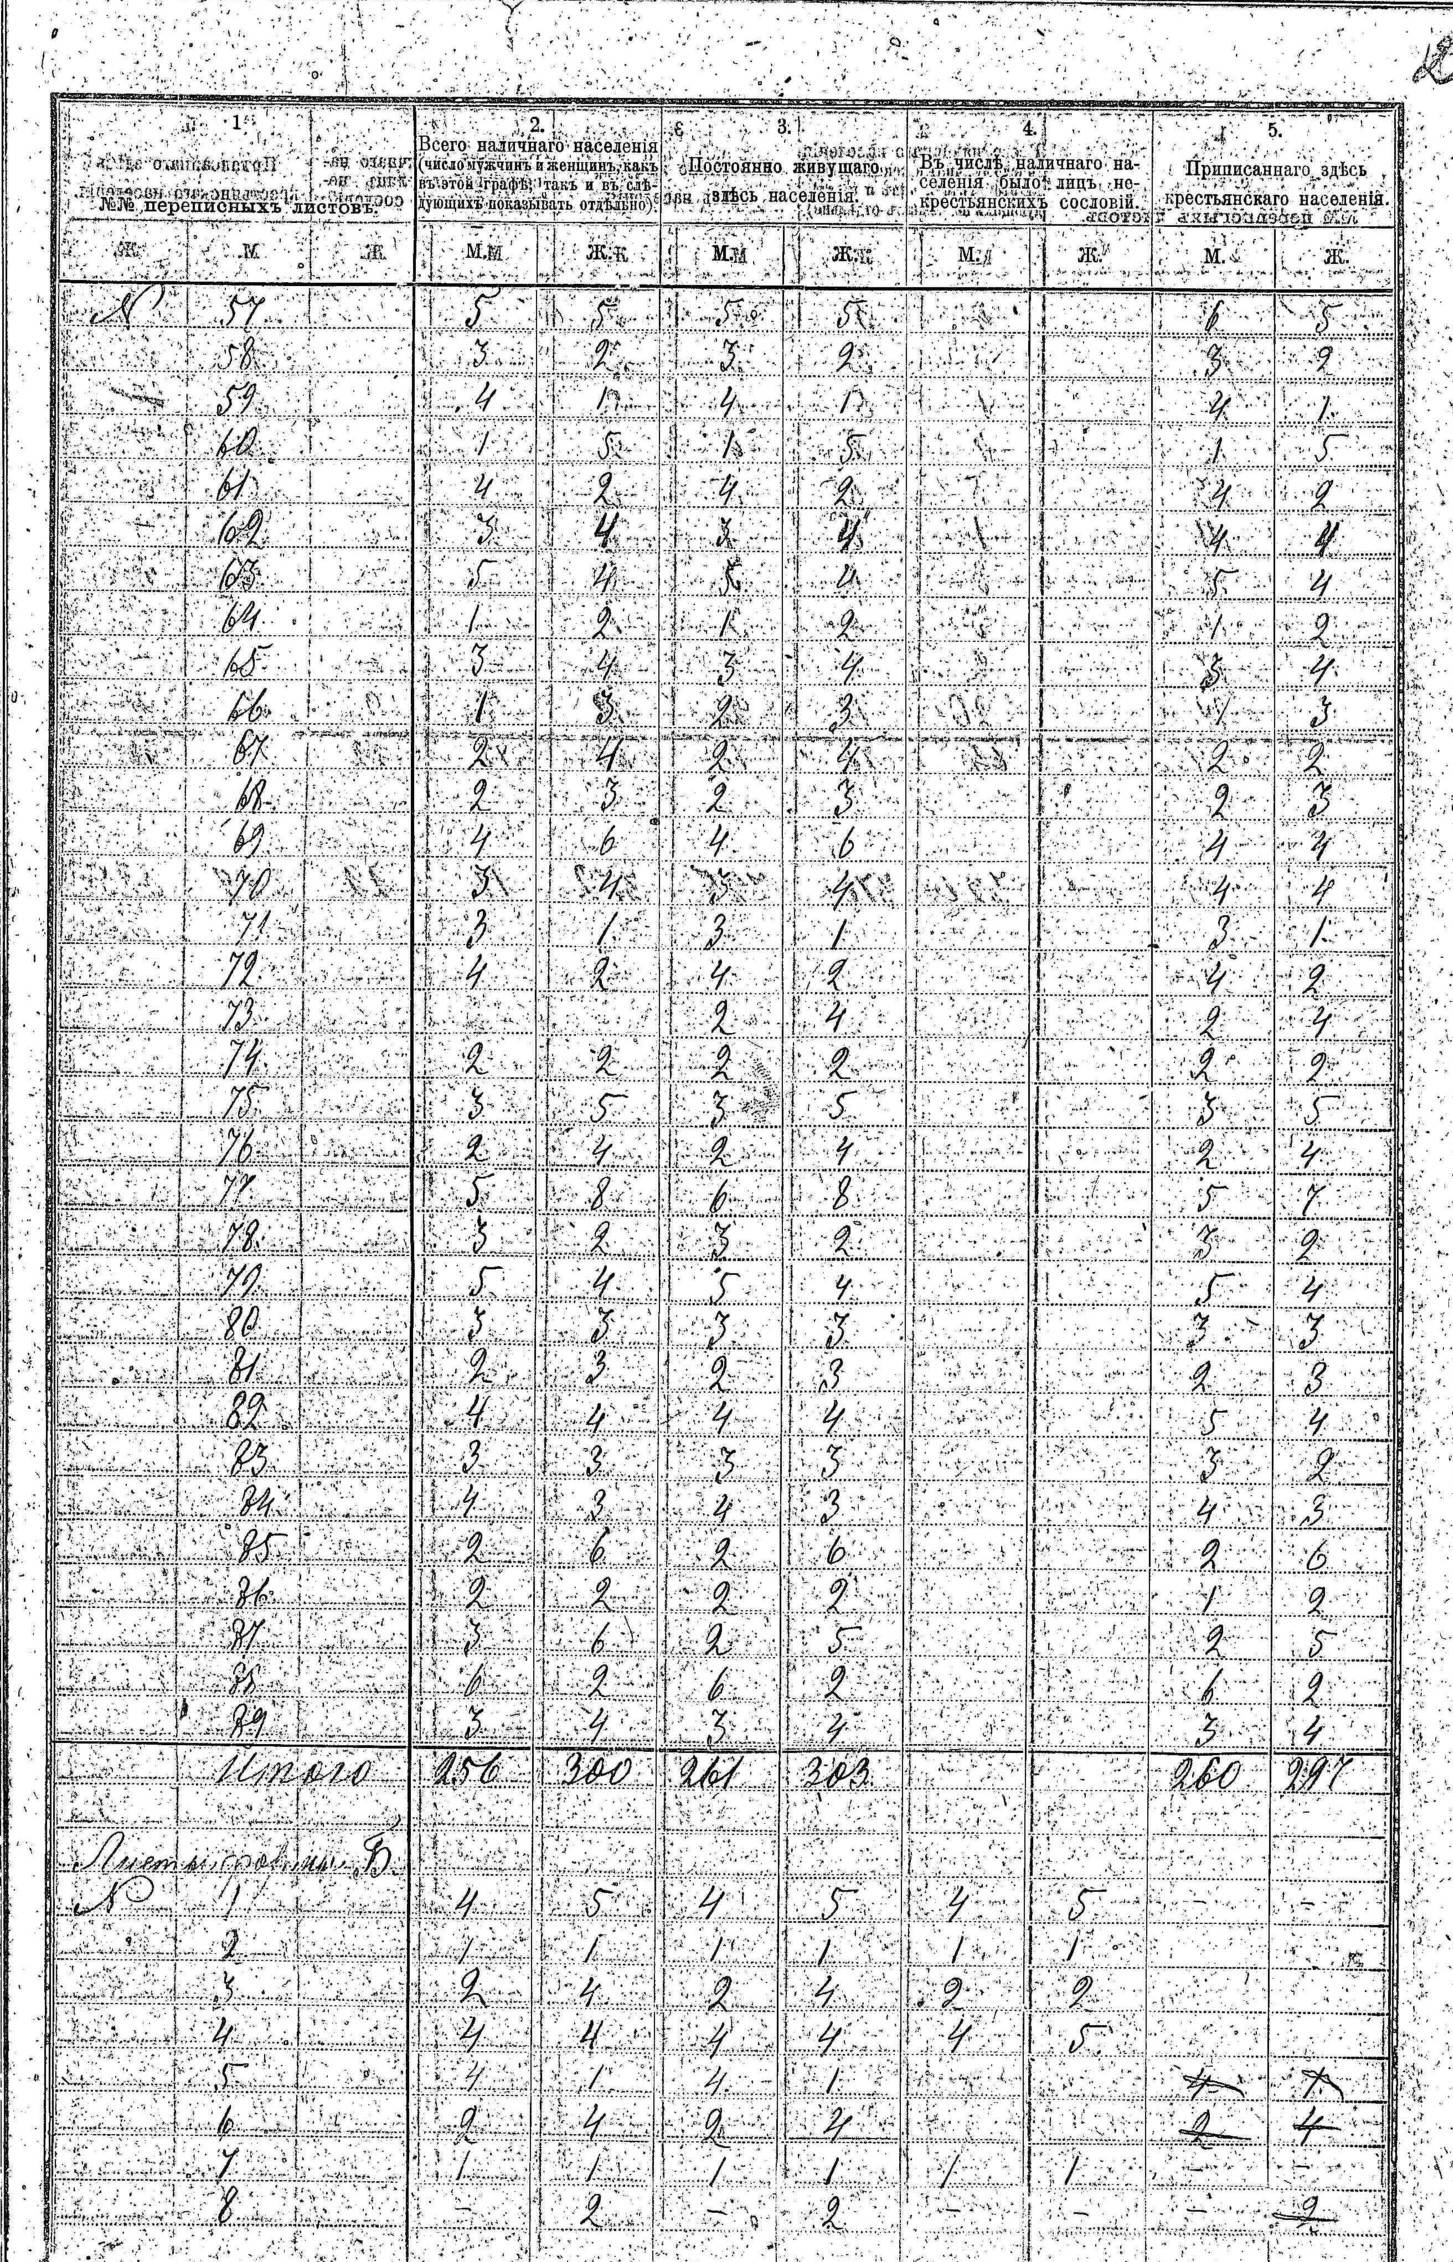 1. 2. 3. 4. 5.
№№ переписныхъ листовъ.
Всего наличнаго населенія (число мужчинъ и женщинъ, какъ въ этой графѣ, такъ и въ слѣдующихъ показывать отдѣльно)
Постоянно живущаго здѣсь населенія.
Въ числѣ наличнаго населенія было лицъ не-крестьянскихъ сословій.
Приписаннаго здѣсь крестьянскаго населенія.
М. Ж. М. Ж. М. Ж. М. Ж.
N 57 5 5 5 5 6 5
58 3 2 3 2 3 2
59 4 1 4 1 4 1
60 1 5 1 5 1 5
61 4 2 4 2 4 2
62 3 4 3 4 4 4
63 5 4 5 4 5 4
64 1 2 1 2 1 2
65 3 4 3 4 3 4
66 1 3 2 3 1 3
67 2 4 2 4 2 2
68 2 3 2 3 2 3
69 4 6 4 6 4 4
70 3 4 3 4 4 4
71 3 1 3 1 3 1
72 4 2 4 2 4 2
73 2 4 2 4
74 2 2 2 2 2 2
75 3 5 3 5 3 5
76 2 4 2 4 2 4
77 5 8 6 8 5 7
78 3 2 3 2 3 2
79 5 4 5 4 5 4
80 3 3 3 3 3 3
81 2 3 2 3 2 3
82 4 4 4 4 5 4
83 3 3 3 3 3 2
84 4 3 4 3 4 3
85 2 6 2 6 2 6
86 2 2 2 2 1 2
87 3 6 2 5 2 5
88 6 2 6 2 6 2
89 3 4 3 4 3 4
Итого 256 300 261 303 260 297
Листы формы Б.
N 1 4 5 4 5 4 5 - -
2 1 1 1 1 1 1
3 2 4 2 4 2 2
4 4 4 4 4 4 5
5 4 1 4 1 4 1
6 2 4 2 4 2 4
7 1 1 1 1 1 1 - -
8 - 2 - 2 - - - 2